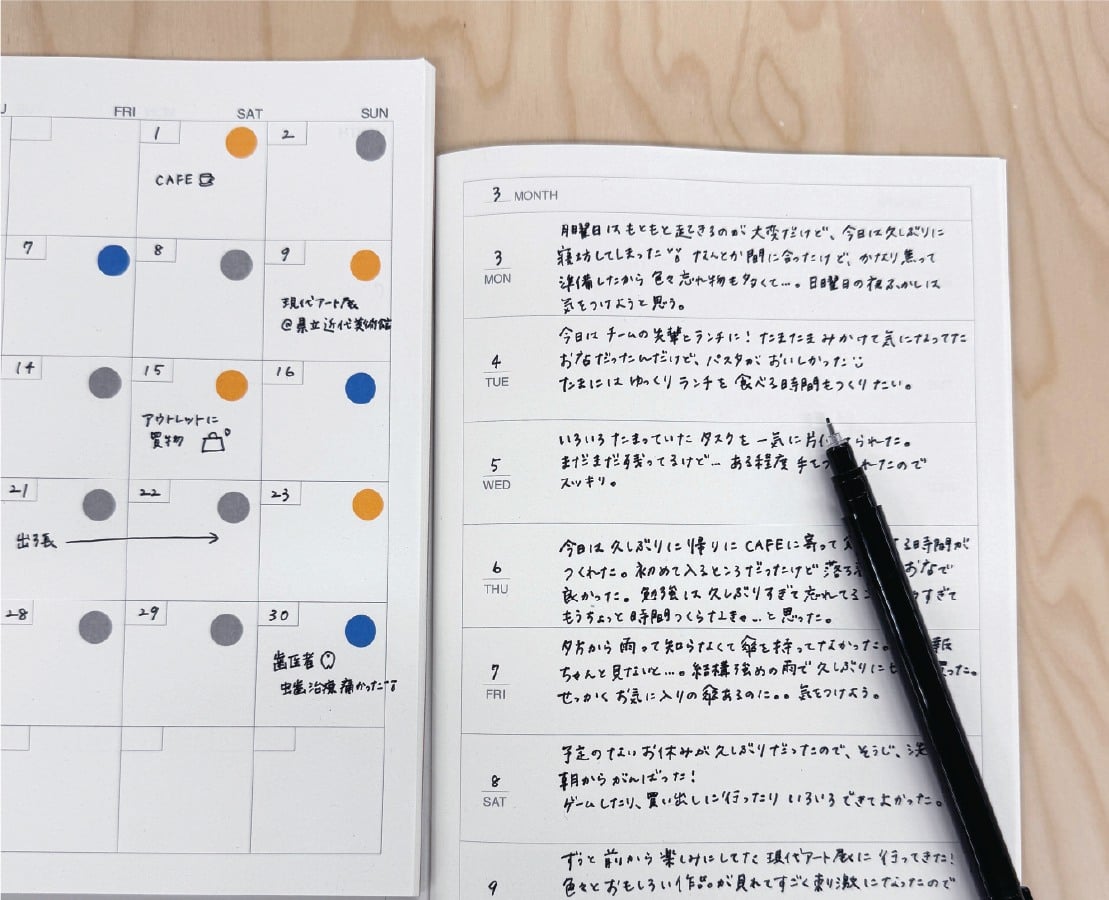 FRI SAT SUN
1 2
CAFE
7 8 9
現代アート展
@県立近代美術館
14 15 16
アウトレットに
買物
21 22 23
出張
28 29 30
歯医者
虫歯治療痛かった
3 MONTH
3 MON
月曜日はもともと起きるのが大変だけど、今日は久しぶりに
寝坊してしまった なんとか間に合ったけど、かなり焦って
準備したから色々忘れ物も多くて…。日曜日の夜ふかしは
気をつけようと思う。
4 TUE
今日はチームの先輩とランチに！たまたまみかけて気になってた
お店だったんだけど、パスタがおいしかった
たまにはゆっくりランチを食べる時間もつくりたい。
5 WED
いろいろたまっていたタスクを一気に片付けられた。
まだまだ残ってるけど…ある程度手をつ れたので
スッキリ。
6 THU
今日は久しぶりに帰りにCAFEに寄って る時間が
つくれた。初めて入るところだったけど落ち おなで
良かった。勉強は久しぶりすぎて忘れてる すぎて
もうちょっと時間つくらなきゃ…と思った。
7 FRI
夕方から雨って知らなくて傘を持ってなかった。 報
ちゃんと見ないと…。結構強めの雨で久しぶりに った。
せっかくお気に入りの傘あるのに。。気をつけよう。
8 SAT
予定のないお休みが久しぶりだったので、そうじ、洗
朝からがんばった！
ゲームしたり、買い出しに行ったりいろいろできてよかった。
9
ずっと前から楽しみにしてた現代アート展に行ってきた！
色々とおもしろい作品が見れてすごく刺激になったので